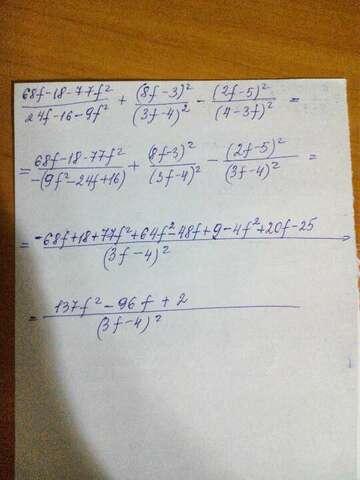 (68f-18-77f²)/(24f-16-9f²) + (8f-3)²/(3f-4)² - (2f-5)²/(4-3f)² =
= (68f-18-77f²)/(-(9f²-24f+16)) + (8f-3)²/(3f-4)² - (2f-5)²/(3f-4)² =
= (-68f+18+77f²+64f²-48f+9-4f²+20f-25)/(3f-4)² =
= (137f²-96f+2)/(3f-4)²